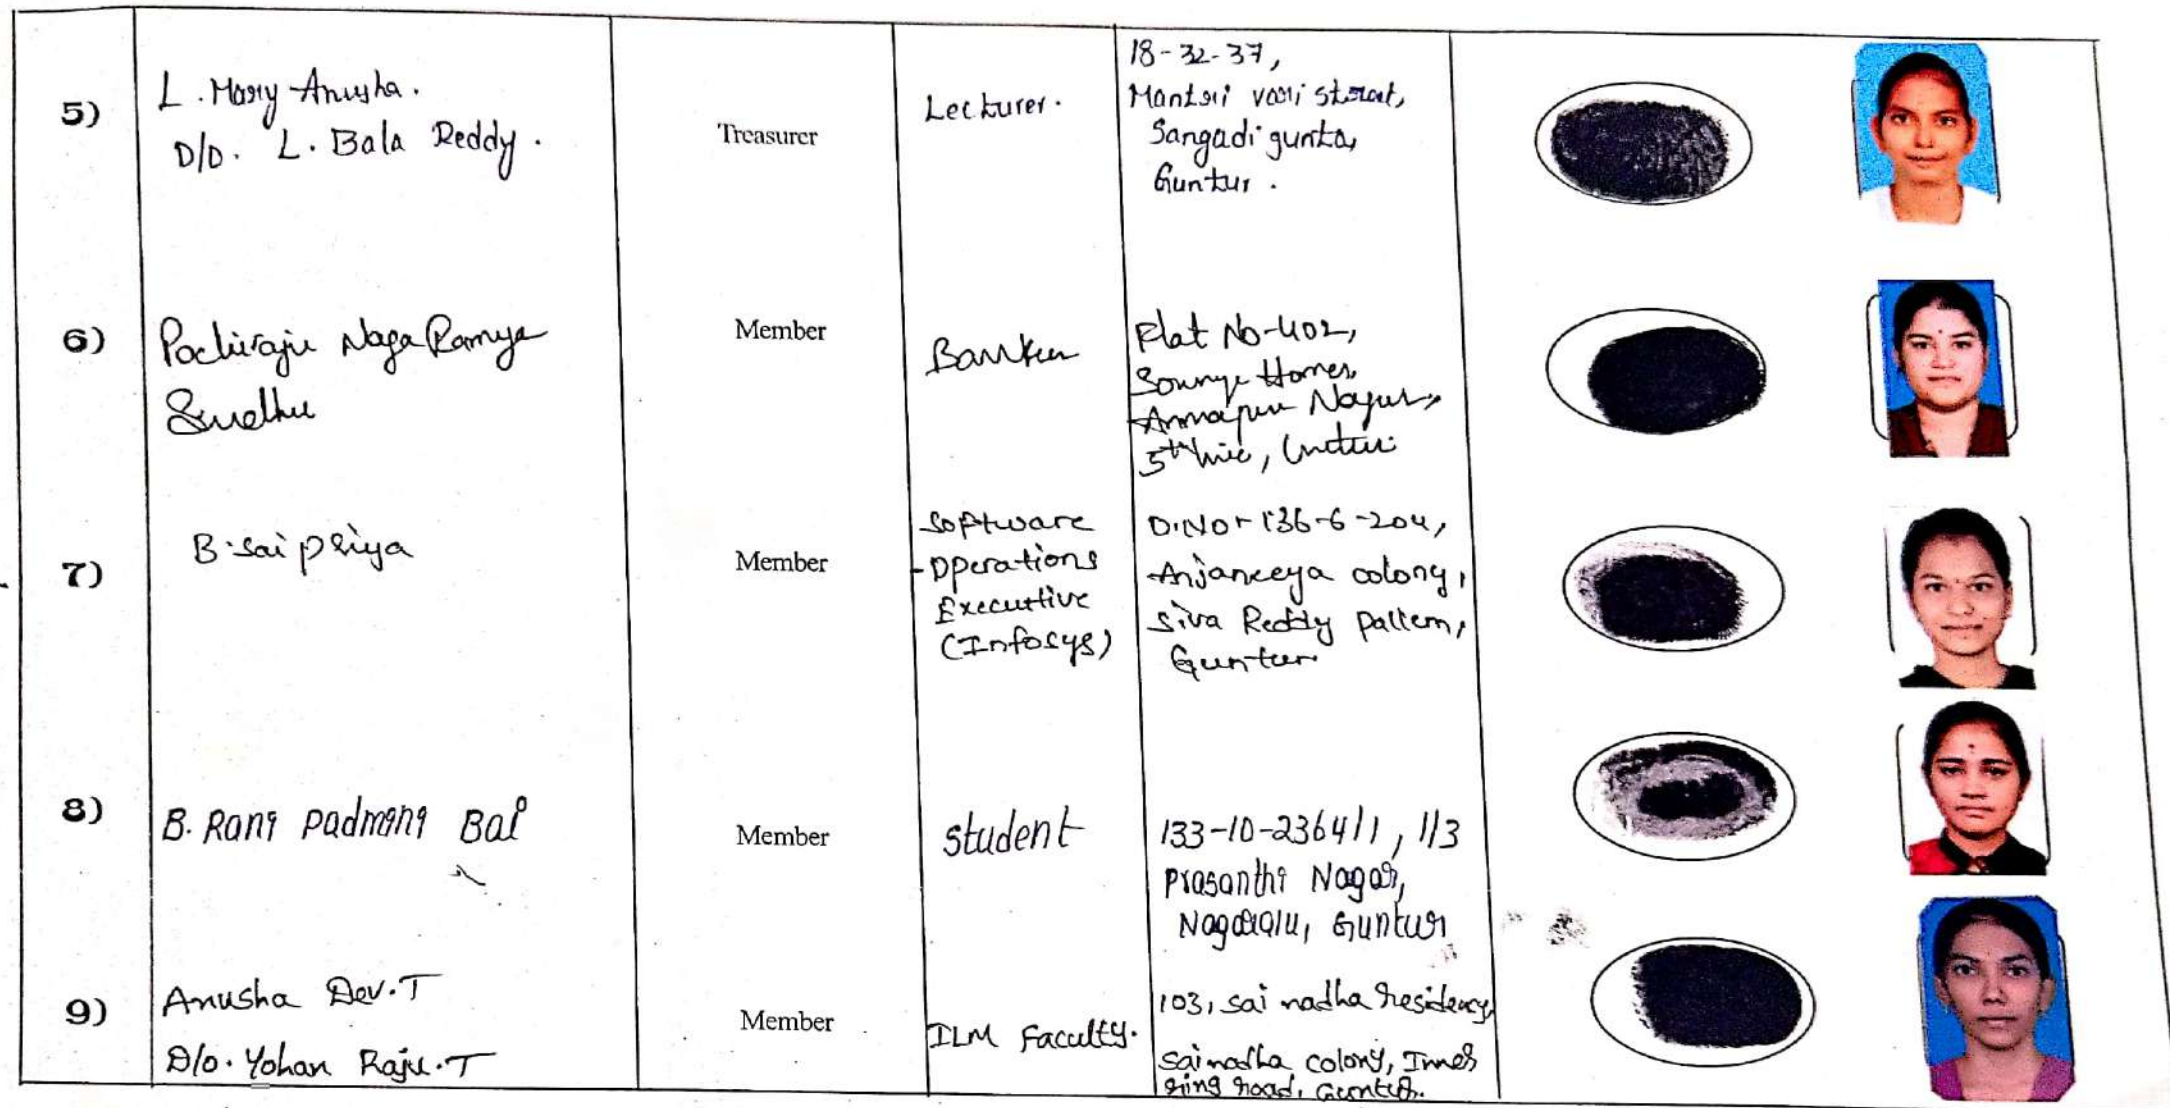 5)
L. Mary Anusha.
D/O. L. Bala Reddy.
Treasurer
Lecturer.
18-32-37,
Mantri vari street,
Sangadi gunta,
Guntur.
6)
Pachiraju Naga Ramya
Member
Banker
Flat No-402,
Homes,
Nagar,
5th line,
7)
B. Sai priya
Member
Software
Operations
Executive
(Infosys)
D.No- 136-6-204,
Anjaneeya colony,
Siva Reddy pallem,
Guntur.
8)
B. Rani Padmini Bai
Member
student
133-10-2364/1, 1/3
Prasanthi Nagar,
Nagaralu, Guntur
9)
Anusha Dev.T
D/o. Yohan Raju.T
Member
ILM Faculty.
103, sai nadha residency
sai nadha colony, Inner
ring road, Guntur.